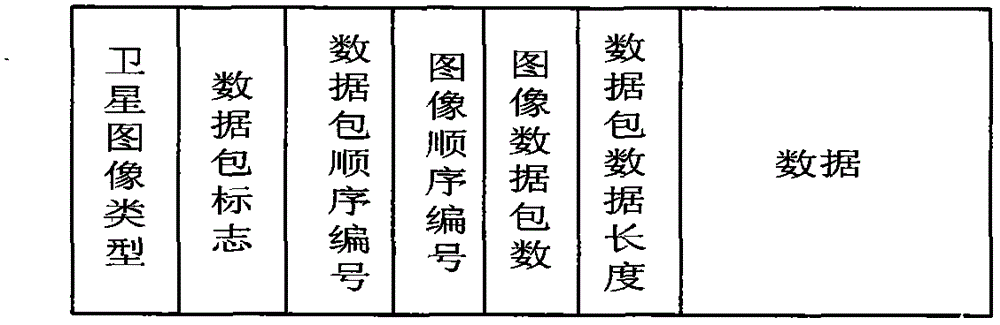 卫星图像类型
数据包标志
数据包顺序编号
图像顺序编号
图像数据包数
数据包数据长度
数据